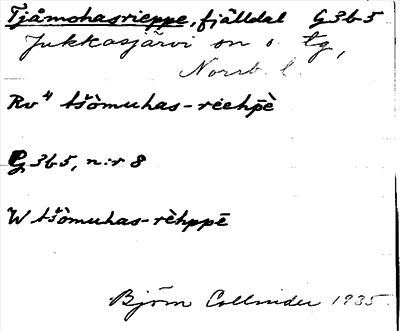 Tjåmohasrieppe, fjälldal G3b5
Jukkasjärvi sn o. tg,
Norrb. l.
Rv⁴ tšòmuhas-rēehpè
G3b5, n:r 8
W tšòmuhas-rèhppē
Björn Collinder 1935